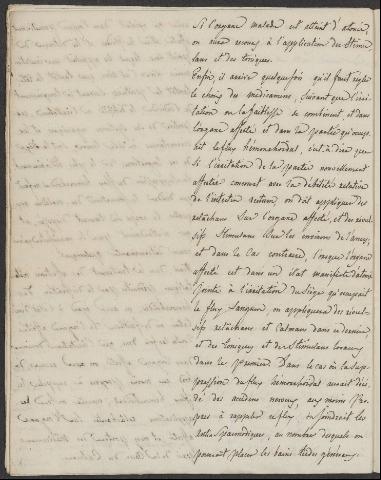 Si l'organe malade est atteint d'atonie,
on aura recours à l'application des stimu
lans et des toniques.
Enfin, il arrive quelquefois qu'il faut régler
le choix des médicamens, suivant que l'irri
tation ou la faiblesse se combinent, et dans
l'organe affecté et dans la partie qu'occu
pait le flux hémorrhoïdal, c'est à dire que
si l'irritation de la partie nouvellement
affectée concourt avec la débilité relative
de l'intestin rectum, on doit appliquer des
relâchans sur l'organe affecté, et des révul
sifs stimulans sur les environs de l'anus;
et dans le cas contraire, lorsque l'organe
affecté est dans un état manifeste d'atonie
jointe à l'irritation du siège qu'occupait
le flux sanguin, on appliquera des révul
sifs relâchans et calmans dans ce dernier,
et des toniques et des stimulans locaux
dans le premier. Dans le cas où la sup
pression du flux hémorrhoïdal aurait déci
dé des accidens nerveux, aux moyens pro
pres à rappeler ce flux, on joindrait les
antispasmodiques, au nombre desquels on
pourrait placer les bains tièdes généraux.